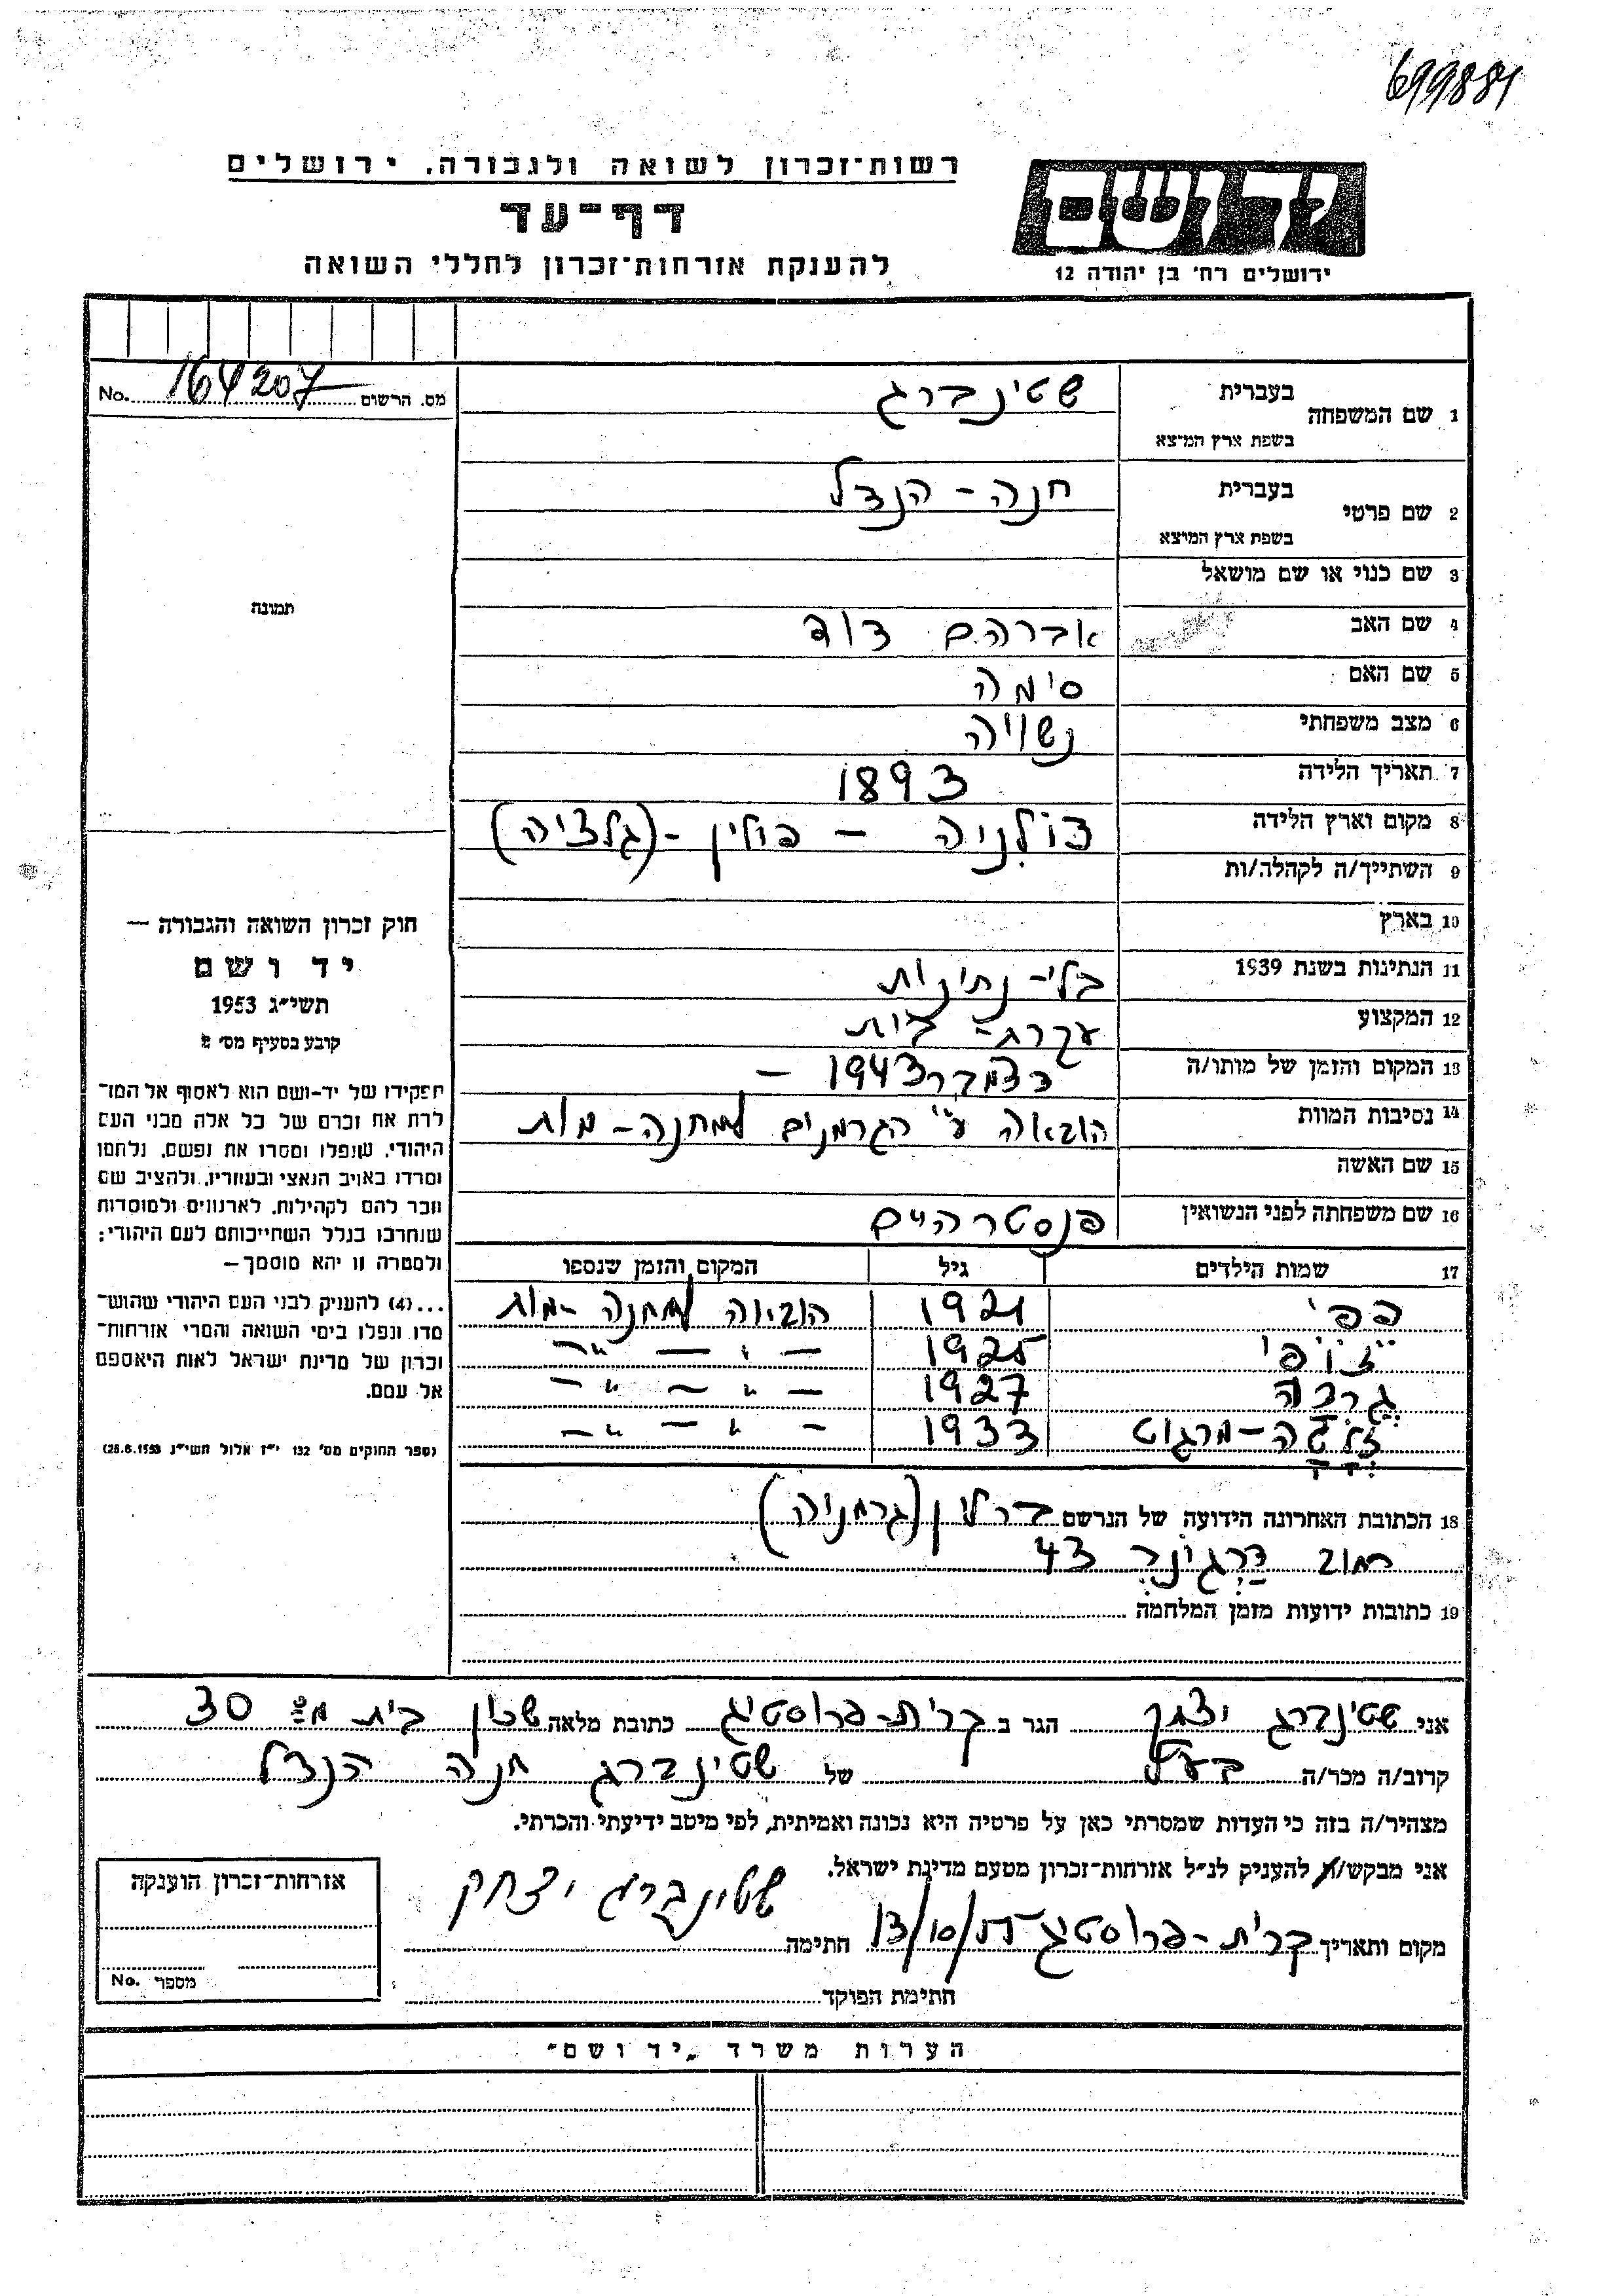 699881
רשות־זכרון לשואה ולגבורה, ירושלים
דף־עד
להענקת אזרחות־זכרון לחללי השואה
יד ושם
ירושלים רח׳ בן יהודה 12
מס. הרשום 164207 No.
1 שם המשפחה בעברית שטינברג
בשפת ארץ המוצא
2 שם פרטי בעברית חנה - הנדל
בשפת ארץ המוצא
3 שם כנוי או שם מושאל
4 שם האב אברהם דוד
5 שם האם סימה
6 מצב משפחתי נשויה
7 תאריך הלידה 1893
8 מקום וארץ הלידה דולניה - פולין - (גלציה)
9 השתייך/ה לקהלה/ות
10 בארץ
11 הנתינות בשנת 1939 בלי - נתינות
12 המקצוע עקרת - בית
13 המקום והזמן של מותו/ה דצמבר 1943 -
14 נסיבות המוות הובאה ע״י הגרמנים למחנה - מות
15 שם האשה
16 שם משפחתה לפני הנשואין פנסטרהיים
17 שמות הילדים גיל המקום והזמן שנספו
פפי 1921 הובאה למחנה - מות
זופי 1925 — ״ — ״ —
גרדה 1927 — ״ — ״ —
זלדה - מרגוט 1933 — ״ — ״ —
18 הכתובת האחרונה הידועה של הנרשם ברלין (גרמניה)
רחוב דרגונר 43
19 כתובות ידועות מזמן המלחמה
תמונה
חוק זכרון השואה והגבורה —
יד ושם
תשי״ג 1953
קובע בסעיף מס׳ 2
תפקידו של יד־ושם הוא לאסוף אל המו־
לדת את זכרם של כל אלה מבני העם
היהודי, שנפלו ומסרו את נפשם, נלחמו
ומרדו באויב הנאצי ובעוזריו, ולהציב שם
וזכר להם לקהילות, לארגונים ולמוסדות
שנחרבו בגלל השתייכותם לעם היהודי;
ולמטרה זו יהא מוסמך —
...(4) להעניק לבני העם היהודי שהוש־
מדו ונפלו בימי השואה והמרי אזרחות־
זכרון של מדינת ישראל לאות היאספם
אל עמם.
(ספר החוקים מס׳ 132 י״ז אלול תשי״ג 28.8.1953)
אני שטינברג יצחק הגר ב קרית - פרוסטיג כתובת מלאה שכון בית מס 30
קרוב/ה מכר/ה בעל של שטינברג חנה הנדל
מצהיר/ה בזה כי העדות שמסרתי כאן על פרטיה היא נכונה ואמיתית, לפי מיטב ידיעתי והכרתי.
אני מבקש/ת להעניק לנ״ל אזרחות־זכרון מטעם מדינת ישראל.
מקום ותאריך קרית - פרוסטיג 13/10/ חתימה שטינברג יצחק
חתימת הפוקד
אזרחות־זכרון הוענקה
מספר No.
הערות משרד „יד ושם״